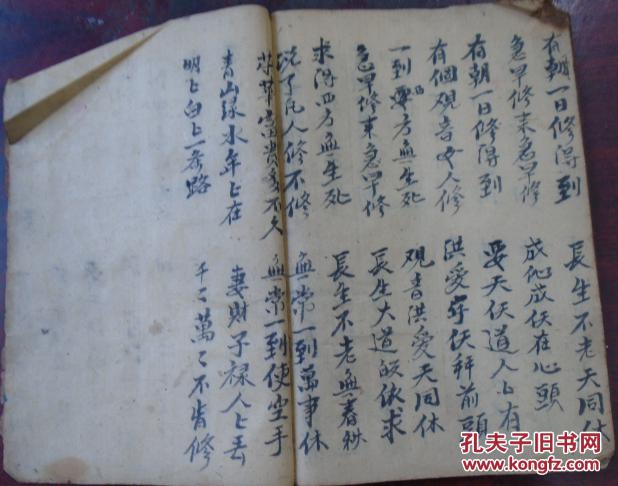 有朝一日修得到 長生不老天同休
急早修来急早修 成仙成仸在心頭
有朝一日修得到 天仸道人〻有
有個观音女人修 洪愛守仸拜前頭
一到西方無生死 观音洪愛天同休
急早修来急早修 長生大道皈依求
求得四方無生死 長生不老無春秋
说了凡人修不修 無常一到萬事休
荣華富貴受不久 無常一到使空手
青山绿水年〻在 妻財子禄人〻丢
明〻白〻一条路 千〻萬〻不肯修
孔夫子旧书网
www.kongfz.com